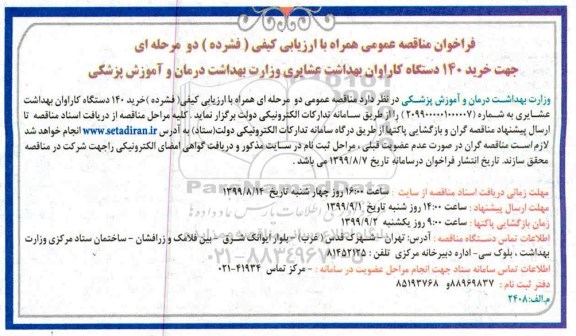 فراخوان مناقصه عمومی همراه با ارزیابی کیفی ( فشرده ) دو مرحله ای
جهت خرید ۱۴۰ دستگاه کاراوان بهداشت عشایری وزارت بهداشت درمان و آموزش پزشکی
وزارت بهداشت درمان و آموزش پزشکی در نظر دارد مناقصه عمومی دو مرحله ای همراه با ارزیابی کیفی( فشرده )خرید ۱۴۰ دستگاه کاراوان بهداشت
عشایری به شماره (۲۰۹۹۰۰۰۰۰۱۰۰۰۰۰۷) را از طریق سامانه تدارکات الکترونیکی دولت برگزار نماید . کلیه مراحل مناقصه از دریافت اسناد مناقصه تا
ارسال پیشنهاد مناقصه گران و بازگشایی پاکتها از طریق درگاه سامانه تدارکات الکترونیکی دولت(ستاد) به آدرس www.setadiran.ir انجام خواهد شد
لازم است مناقصه گران در صورت عدم عضویت قبلی ، مراحل ثبت نام در سایت مذکور و دریافت گواهی امضای الکترونیکی راجهت شرکت در مناقصه
محقق سازند. تاریخ انتشار فراخوان درسامانه تاریخ ۱۳۹۹/۸/۷ می باشد .
مهلت زمانی دریافت اسناد مناقصه از سایت : ساعت ۱۶:۰۰ روز چهار شنبه تاریخ ۱۳۹۹/۸/۱۴
مهلت ارسال پیشنهاد : ساعت ۱۴:۰۰ روز شنبه تاریخ ۱۳۹۹/۹/۱
زمان بازگشایی پاکتها : ساعت ۹:۰۰ روز یکشنبه ۱۳۹۹/۹/۲
اطلاعات تماس دستگاه مناقصه : آدرس: تهران – شهرک قدس( غرب) – بلوار ایوانک شرق – بین فلامک و زرافشان – ساختمان ستاد مرکزی وزارت
بهداشت ، بلوک سی- اداره دبیرخانه مرکزی تلفن : ۸۱۴۵۲۱۲۵
اطلاعات تماس سامانه ستاد جهت انجام مراحل عضویت در سامانه : – مرکز تماس ۴۱۹۳۴-۰۲۱
دفتر ثبت نام : ۸۸۹۶۹۸۳۷ و ۸۵۱۹۳۷۶۸
م.الف:۲۴۰۸
۰۲۱-۸۸۳۴۹۶۷۰-۵